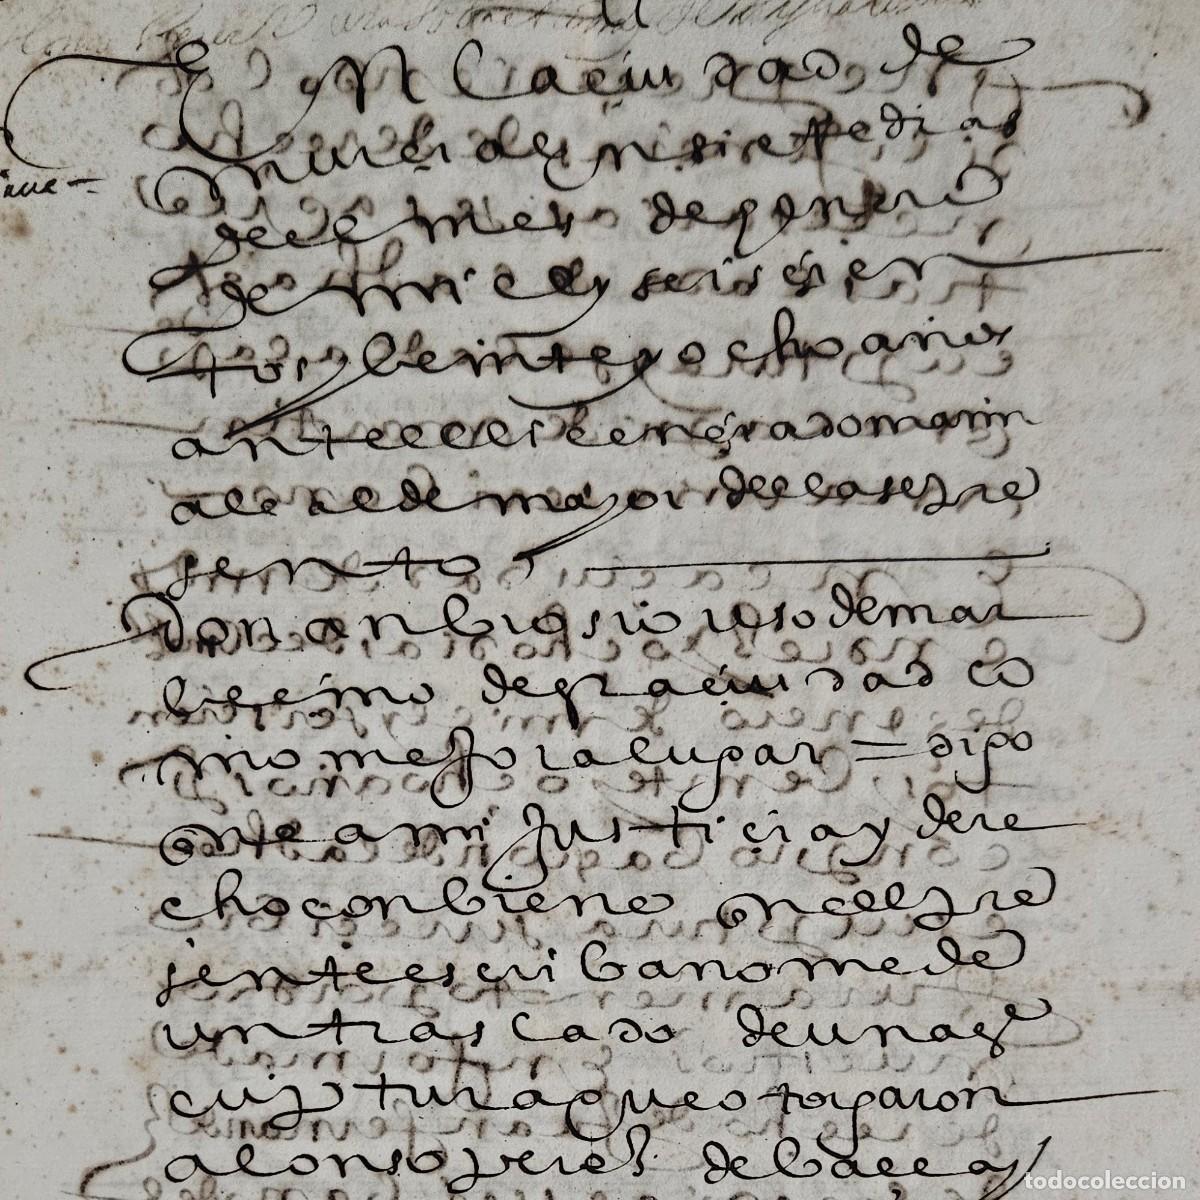 En la ciudad de
murçia en siete dias
del mes de henero
de mill y seisçien
tos y beinte y ocho años
ante el liçençiado marin
alcalde mayor della se pre
sento
Don anbrosio usodemar
beçino desta çiudad co
mo mejor a lugar = digo
que a mi justiçia y dere
cho conbiene quel pre
sente escribano me de
un traslado de una es
criptura que otorgaron
alonso perez de baeças
todocoleccion